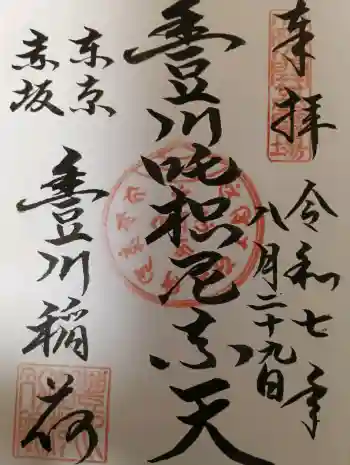 奉拝
令和七年
八月二十九日
豊川吒枳尼真天
東京
赤坂
豊川稲荷